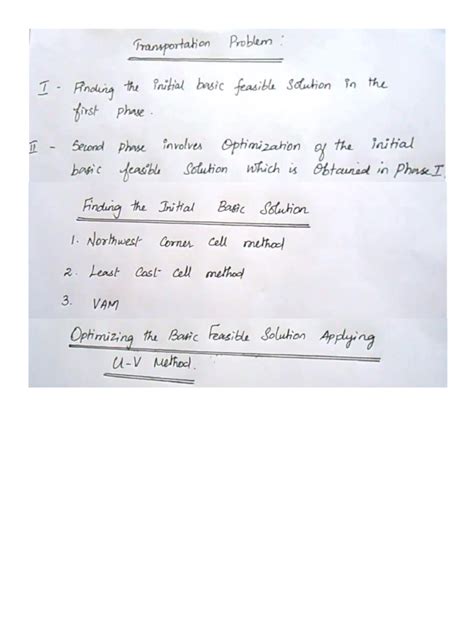 Transportation Problem :
I - Finding the initial basic feasible solution in the
first phase.
II - Second phase involves Optimization of the initial
basic feasible Solution which is Obtained in Phase I.
Finding the Initial Basic Solution
1. Northwest Corner Cell method
2. Least Cost Cell method
3. VAM
Optimizing the Basic Feasible Solution Applying
U-V Method.